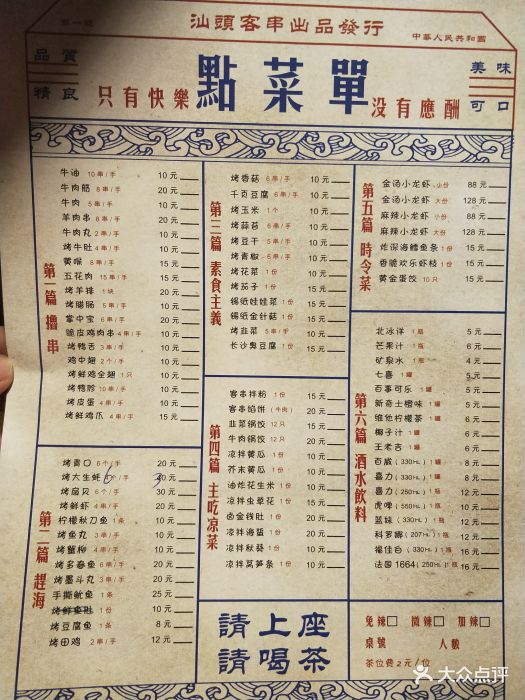 第一號
汕頭客串出品發行
中華人民共和國
品質
精良
只有快樂
點菜單
没有應酬
美味
可口
第一篇 擼串
牛油 10串/手 10元
牛肉筋 8串/手 20元
牛肉 5串/手 10元
羊肉串 8串/手 20元
牛肉丸 2串/手 10元
烤牛肚 4串/手 10元
黄喉 8串/手 15元
五花肉 15串/手 15元
烤羊排 1块 20元
烤腊肠 5串/手 20元
掌中宝 6串/手 20元
脆皮鸡肉串 4串/手 10元
烤鸭舌 3串/手 20元
鸡中翅 2个/手 10元
烤鲜鸡全翅 1只 10元
烤鸭胗 10串/手 10元
烤皮蛋 4串/手 10元
烤鲜鸡爪 4串/手 15元
第二篇 趕海
烤青口 6个/手 20元
烤大生蚝 6个/手 20元
烤扇贝 6个/手 30元
烤鲜虾 4串/手 20元
柠檬秋刀鱼 1条 10元
烤鱼丸 3串/手 10元
烤蟹柳 4串/手 10元
烤多春鱼 6串/手 20元
烤墨斗丸 3串/手 20元
手撕鱿鱼 1条 25元
烤鲜鱼肚 1份 10元
烤豆腐鱼 1条 8元
烤田鸡 2串/手 12元
第三篇 素食主義
烤香菇 6串/手 10元
千页豆腐 6串/手 10元
烤玉米 1个 10元
烤蒜苔 6串/手 10元
烤豆干 5串/手 10元
烤青椒 6串/手 10元
烤花菜 1份 10元
烤茄子 1份 10元
锡纸娃娃菜 1份 15元
锡纸金针菇 1份 15元
烤韭菜 5串/手 10元
长沙臭豆腐 1份 15元
第四篇 主吃凉菜
客串拌粉 1份 15元
客串馅饼 (牛肉) 20元
韭菜锅饺 12只 15元
牛肉锅饺 12只 20元
凉拌黄瓜 1份 10元
芥末黄瓜 1份 10元
油炸花生米 1份 10元
凉拌虫草花 1份 15元
卤金钱肚 1份 20元
凉拌海蜇 1份 20元
凉拌秋葵 1份 10元
凉拌莴笋条 1份 10元
第五篇 時令菜
金汤小龙虾 小份 88元
金汤小龙虾 大份 128元
麻辣小龙虾 小份 88元
麻辣小龙虾 大份 128元
炸深海鳕鱼条 1份 15元
香脆欢乐虾枝 1份 15元
黄金蛋饺 10只 15元
第六篇 酒水飲料
北冰洋 1瓶 5元
芒果汁 1瓶 6元
矿泉水 1瓶 4元
七喜 1罐 5元
百事可乐 1罐 5元
新奇士橙味 1罐 6元
维他柠檬茶 1罐 6元
椰子汁 1罐 6元
王老吉 1罐 6元
百威 (330ML) 1罐 8元
喜力 (330ML) 1罐 8元
喜力 (250ML) 1瓶 12元
虎啤 (550ML) 1瓶 10元
蓝妹 (330ML) 1瓶 12元
科罗娜 (207ML) 1瓶 16元
福佳白 (330ML) 1瓶 16元
法国1664 (250ML) 1瓶 16元
請上座
請喝茶
免辣□ 微辣□ 加辣□
桌號 人數
茶位费2元/位
大众点评